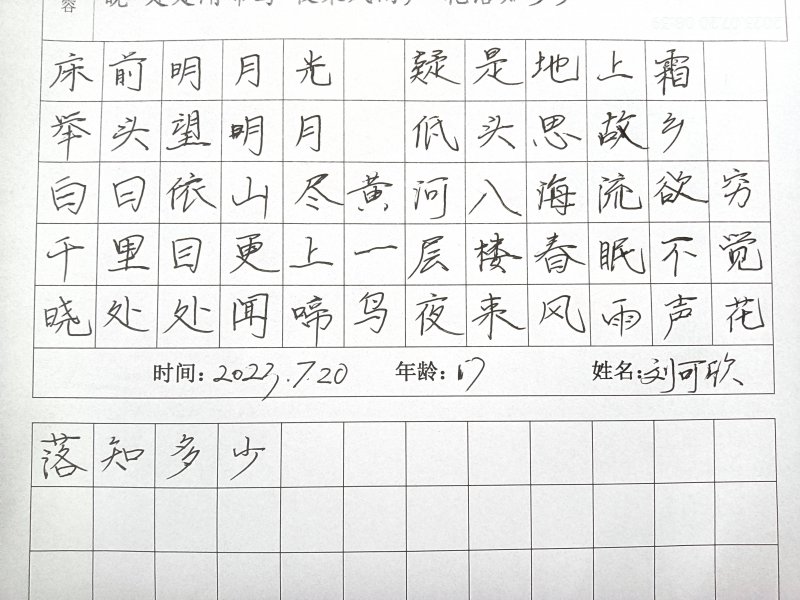 容
床前明月光 疑是地上霜
举头望明月 低头思故乡
白日依山尽黄河入海流欲穷
千里目更上一层楼春眠不觉
晓处处闻啼鸟夜来风雨声花
时间：2023.7.20 年龄：17 姓名：刘可欣
落知多少